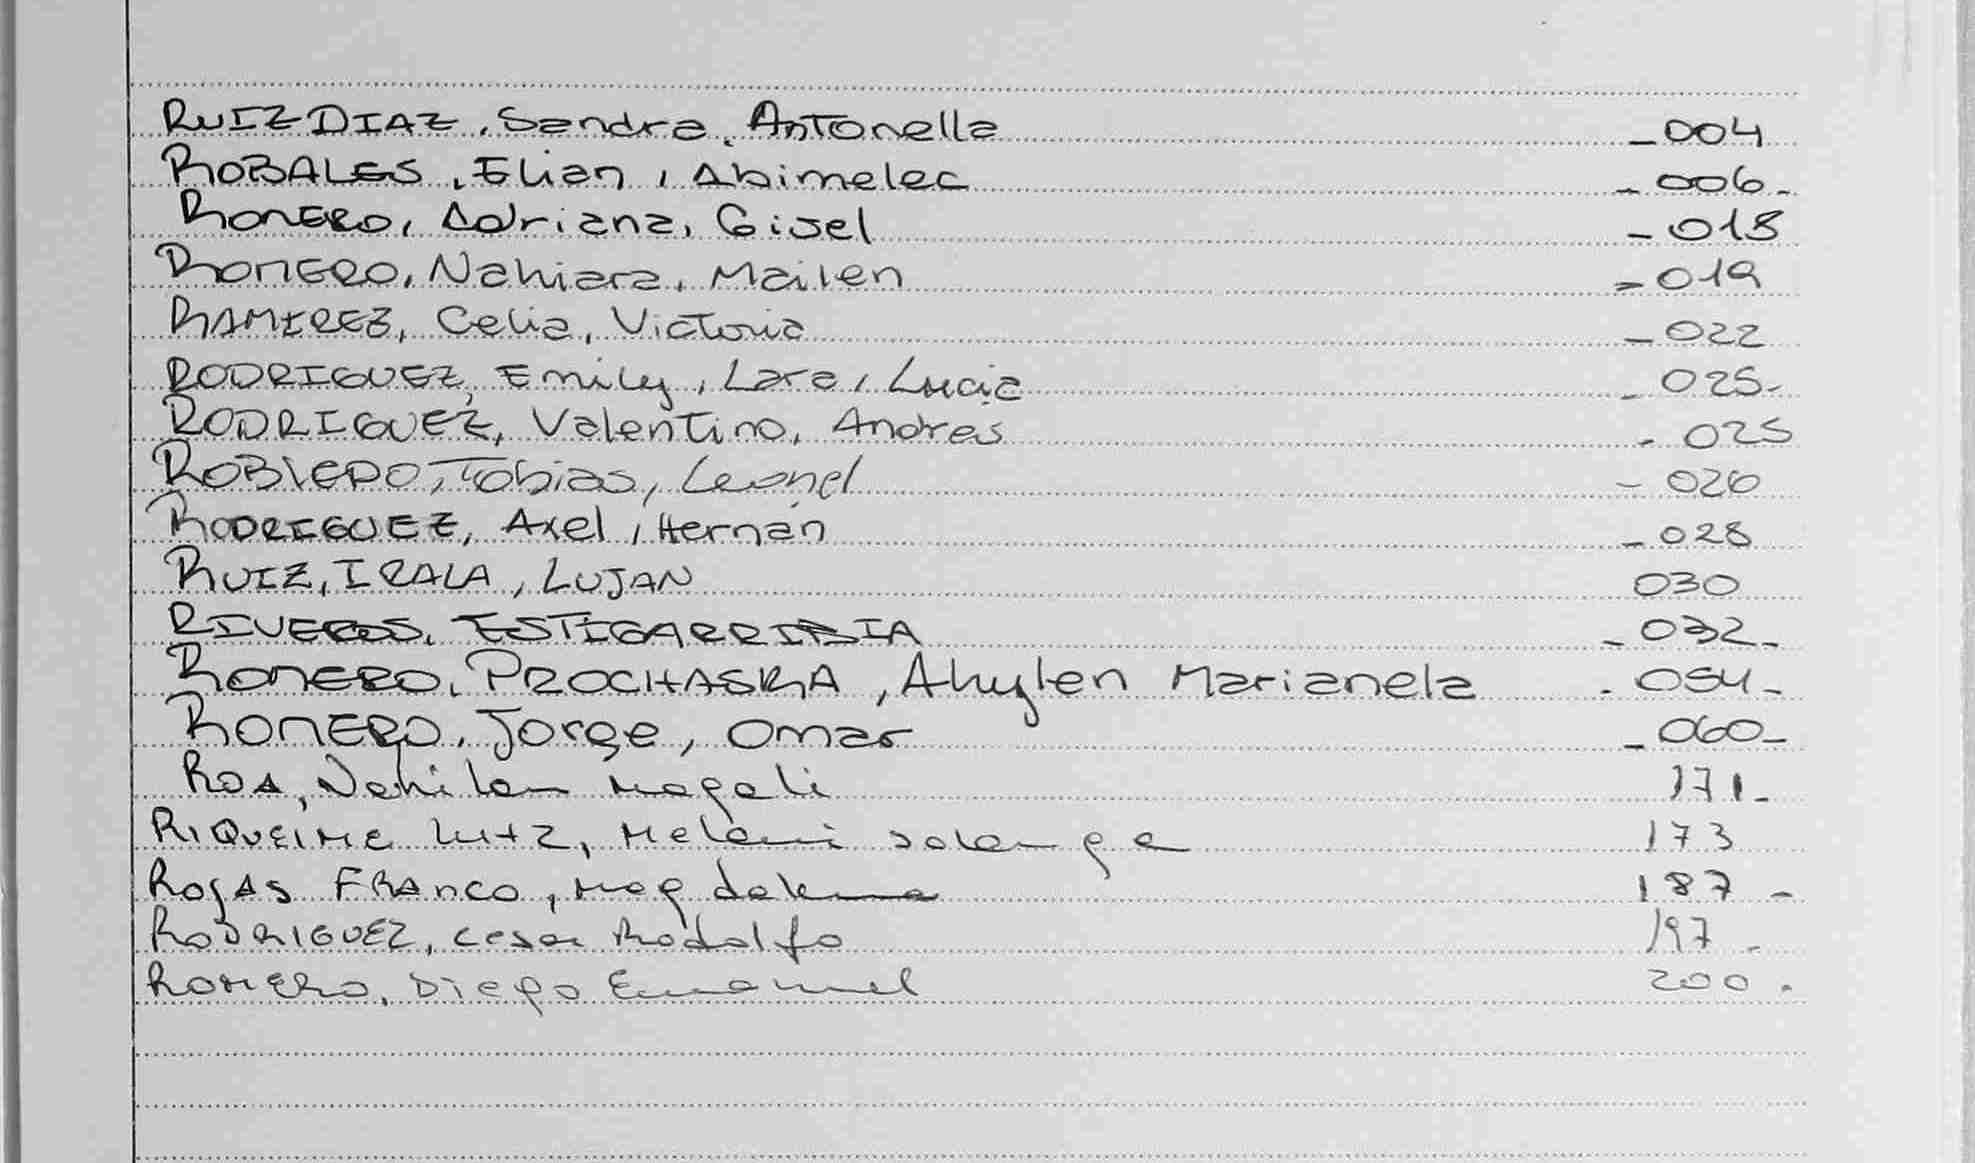 RUIZ DIAZ, Sandra, Antonella _004
ROBALES, Elian, Abimelec _ 006 _
ROMERO, Adriana, Gisel _ 018
ROMERO, Nahiara, Mailen _ 019
RAMIREZ, Celia, Victoria _ 022
RODRIGUEZ, Emily, Lara, Lucia _ 025-
RODRIGUEZ, Valentino, Andres - 025
ROBLEDO, Tobias, Leonel - 026
RODRIGUEZ, Axel, Hernán _ 028
RUIZ, IRALA, LUJAN 030
RIVEROS, ESTIGARRIBIA _ 032_
ROMERO, PROCHASKA, Ahylen Marianela - 054-
ROMERO, Jorge, Omar _ 060_
ROA, Nahilan Magali 171-
RIQUELME LUTZ, Melani Solange 173
ROJAS FRANCO, Magdalena 187 -
RODRIGUEZ, Cesar Rodolfo 197 -
ROMERO, Diego Emanuel 200 .